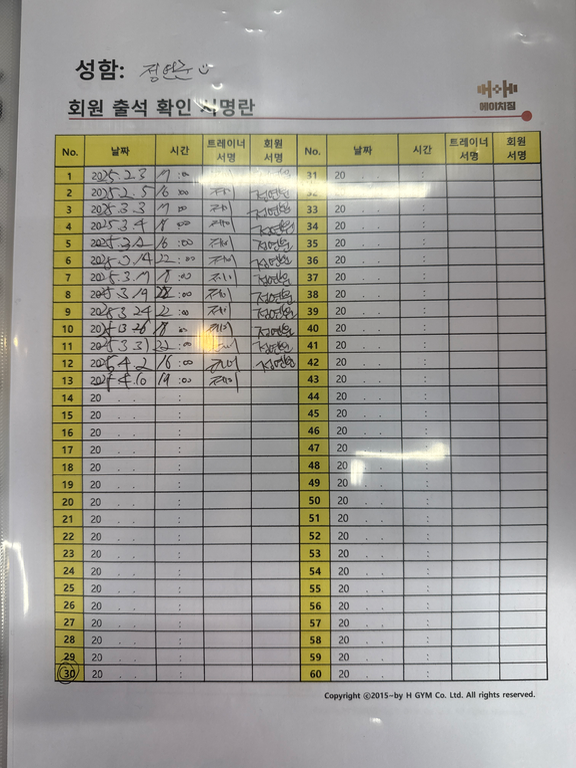 성함: 정연준
H·H
에이치짐
회원 출석 확인 서명란
No. 날짜 시간 트레이너 서명 회원 서명 No. 날짜 시간 트레이너 서명 회원 서명
1 2025.2.3 17:00 31 20 . . :
2 2025.2.5 16:00 32
3 2025.3.3 17:00 33 20 . . :
4 2025.3.4 18:00 34 20 . . :
5 2025.3.12 16:00 35 20 . . :
6 2025.3.14 22:00 36 20 . . :
7 2025.3.17 18:00 37 20 . . :
8 2025.3.19 22:00 38 20 . . :
9 2025.3.24 22:00 39 20 . . :
10 2025.3.26 18:00 40 20 . . :
11 2025.3.31 22:00 41 20 . . :
12 2025.4.2 16:00 42 20 . . :
13 2025.4.10 19:00 43 20 . . :
14 20 . . : 44 20 . . :
15 20 . . : 45 20 . . :
16 20 . . : 46 20 . . :
17 20 . . : 47 20 . . :
18 20 . . : 48 20 . . :
19 20 . . : 49 20 . . :
20 20 . . : 50 20 . . :
21 20 . . : 51 20 . . :
22 20 . . : 52 20 . . :
23 20 . . : 53 20 . . :
24 20 . . : 54 20 . . :
25 20 . . : 55 20 . . :
26 20 . . : 56 20 . . :
27 20 . . : 57 20 . . :
28 20 . . : 58 20 . . :
29 20 . . : 59 20 . . :
30 20 . . : 60 20 . . :
Copyright ⓒ2015-by H GYM Co. Ltd. All rights reserved.